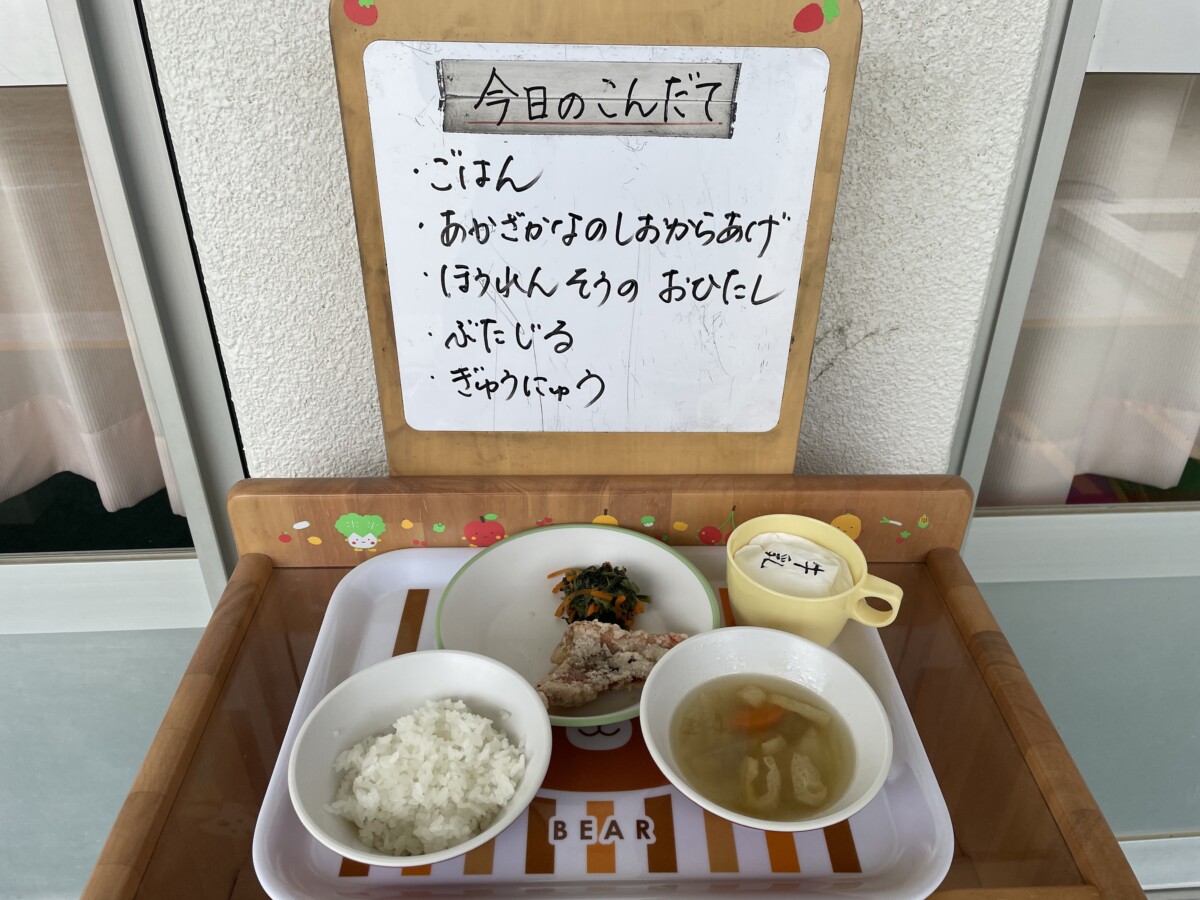 今日のこんだて
・ごはん
・あかざかなのしおからあげ
・ほうれんそうの おひたし
・ぶたじる
・ぎゅうにゅう
牛乳
BEAR